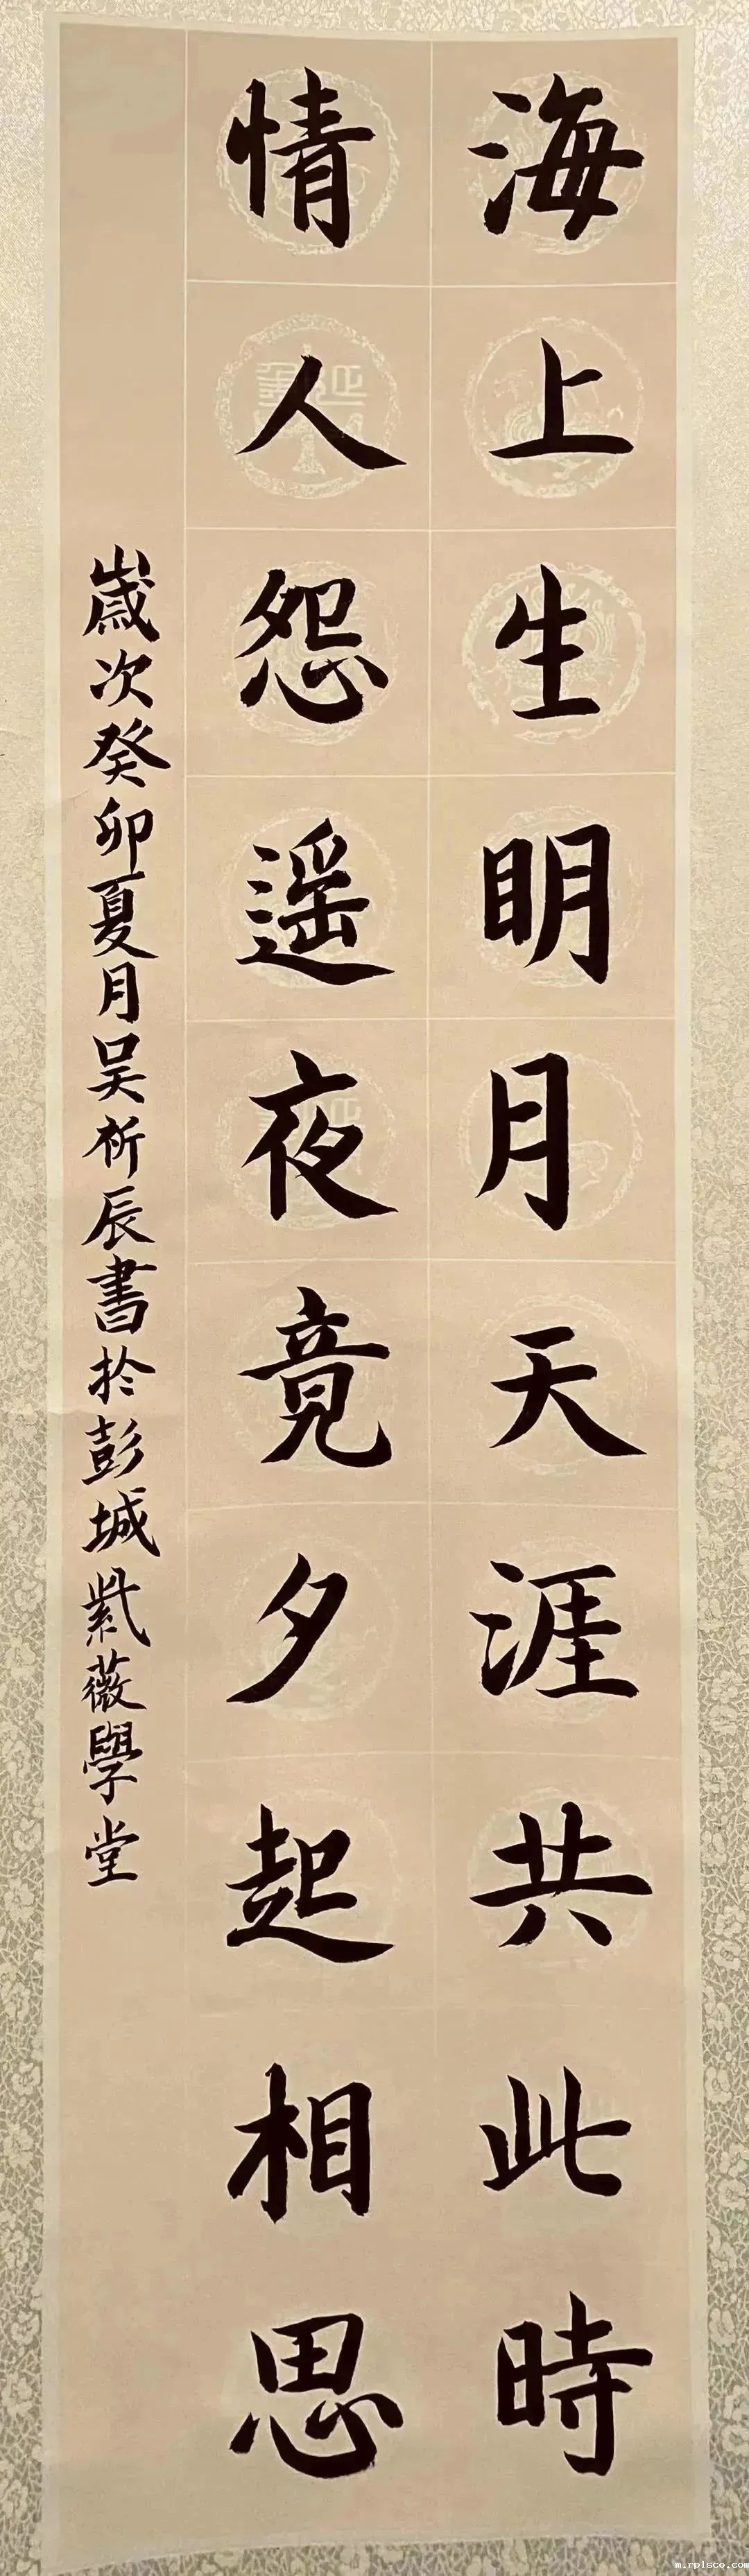 海上生明月天涯共此時
情人怨遥夜竟夕起相思
歲次癸卯夏月吴祈辰書於彭城紫薇學堂
m.rplsco.com